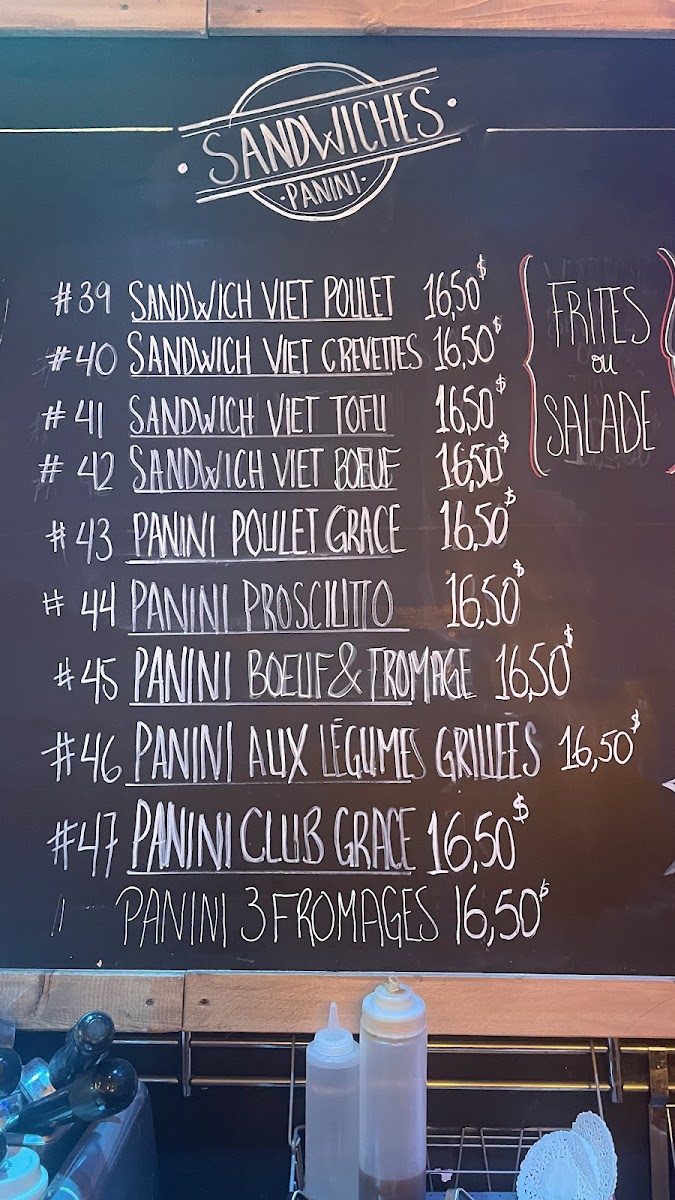 SANDWICHES
·PANINI·
#39 SANDWICH VIET POULET 16,50$
#40 SANDWICH VIET CREVETTES 16,50$
#41 SANDWICH VIET TOFU 16,50$
#42 SANDWICH VIET BOEUF 16,50$
#43 PANINI POULET GRACE 16,50$
#44 PANINI PROSCIUTTO 16,50$
#45 PANINI BOEUF & FROMAGE 16,50$
#46 PANINI AUX LÉGUMES GRILLÉES 16,50$
#47 PANINI CLUB GRACE 16,50$
PANINI 3 FROMAGES 16,50$
FRITES
ou
SALADE